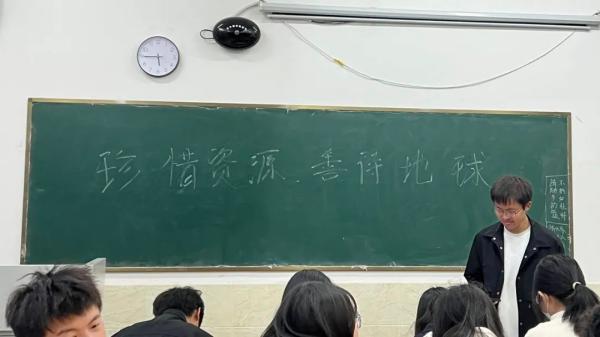 珍惜资源、善待地球